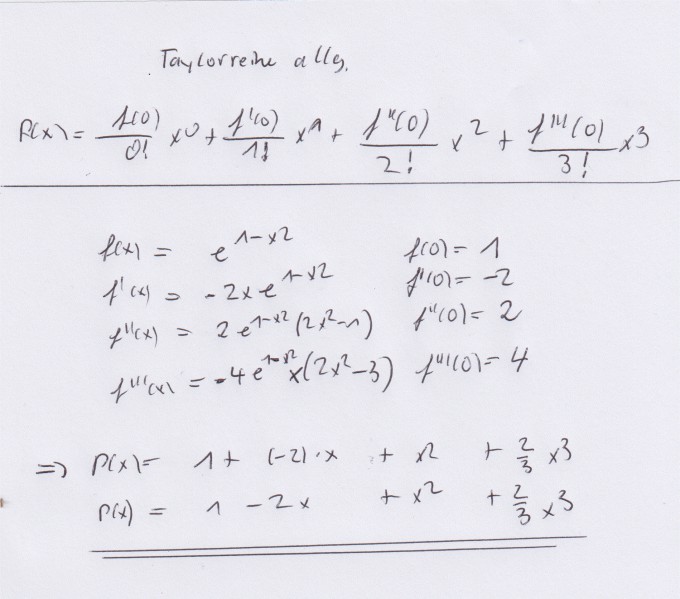 Taylorreihe allg.
P(x) = f(0)/0! x^0 + f'(0)/1! x^1 + f''(0)/2! x^2 + f'''(0)/3! x^3
f(x) = e^(1-x^2) f(0) = 1
f'(x) = -2x e^(1-x^2) f'(0) = -2
f''(x) = 2 e^(1-x^2) (2x^2-1) f''(0) = 2
f'''(x) = -4 e^(1-x^2) x(2x^2-3) f'''(0) = 4
=> P(x) = 1 + (-2)·x + x^2 + 2/3 x^3
P(x) = 1 - 2x + x^2 + 2/3 x^3